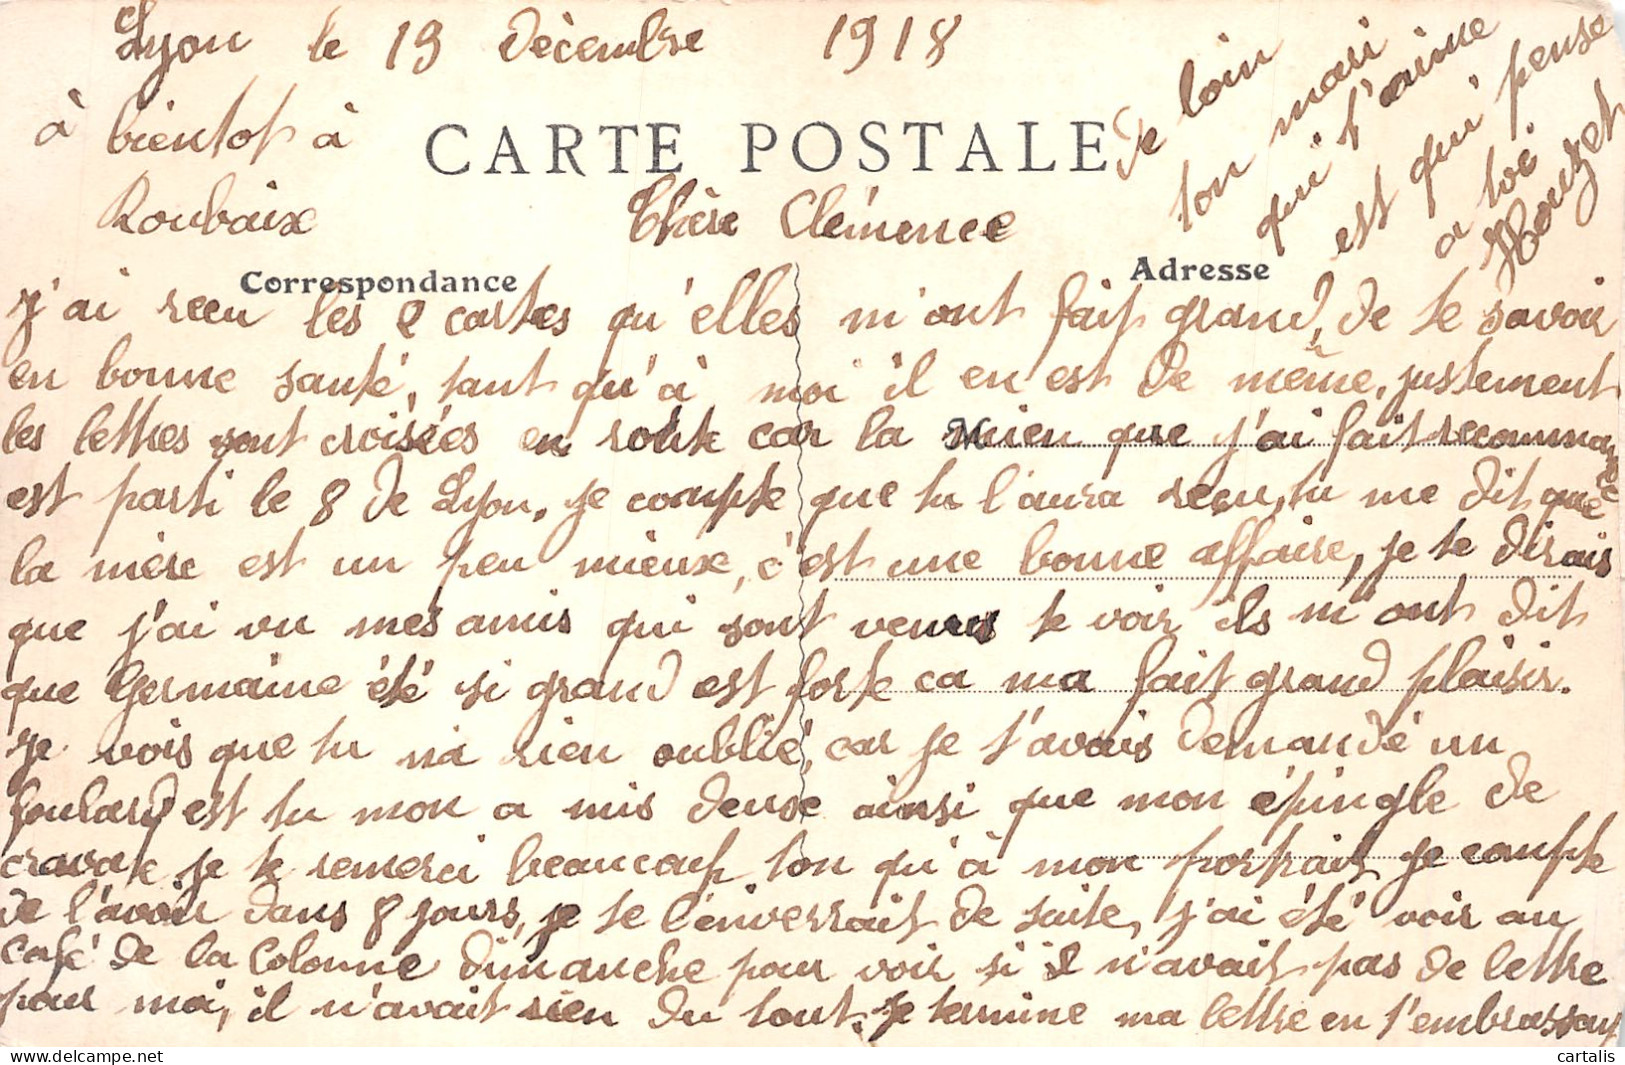 Lyon le 19 Décembre 1918
à bientot à
Roubaix
CARTE POSTALE
Chère Clémence
Correspondance
Adresse
j'ai recu les 2 cartes qu'elles m'ont fait grand, de te savoir
en bonne santé, tant qu'à moi il en est de même, justement
les lettres sont croisées en route car la Mien que j'ai fait recommandée
est parti le 8 de Lyon, je compte que tu l'aura recu, tu me dit que
la mère est un peu mieux, c'est une bonne affaire, je te dirais
que j'ai vu mes amis qui sont venus te voir ils m'ont dit
que Germaine été si grand est forte ca ma fait grand plaisir.
Je vois que tu n'a rien oublié, car je t'avais demandé un
foulard est tu mon a mis deux ainsi que mon épingle de
cravate je te remerci beaucoup ton qu'à mon portrait je compte
de l'avoir dans 8 jours, je te l'enverrait de suite, j'ai été voir au
café de la Colonne dimanche pour voir si il n'avait pas de lettre
pour moi, il n'avait rien du tout. Je termine ma lettre en t'embrassant
de loin
ton mari
qui t'aime
est qui pense
a toi
cartalis